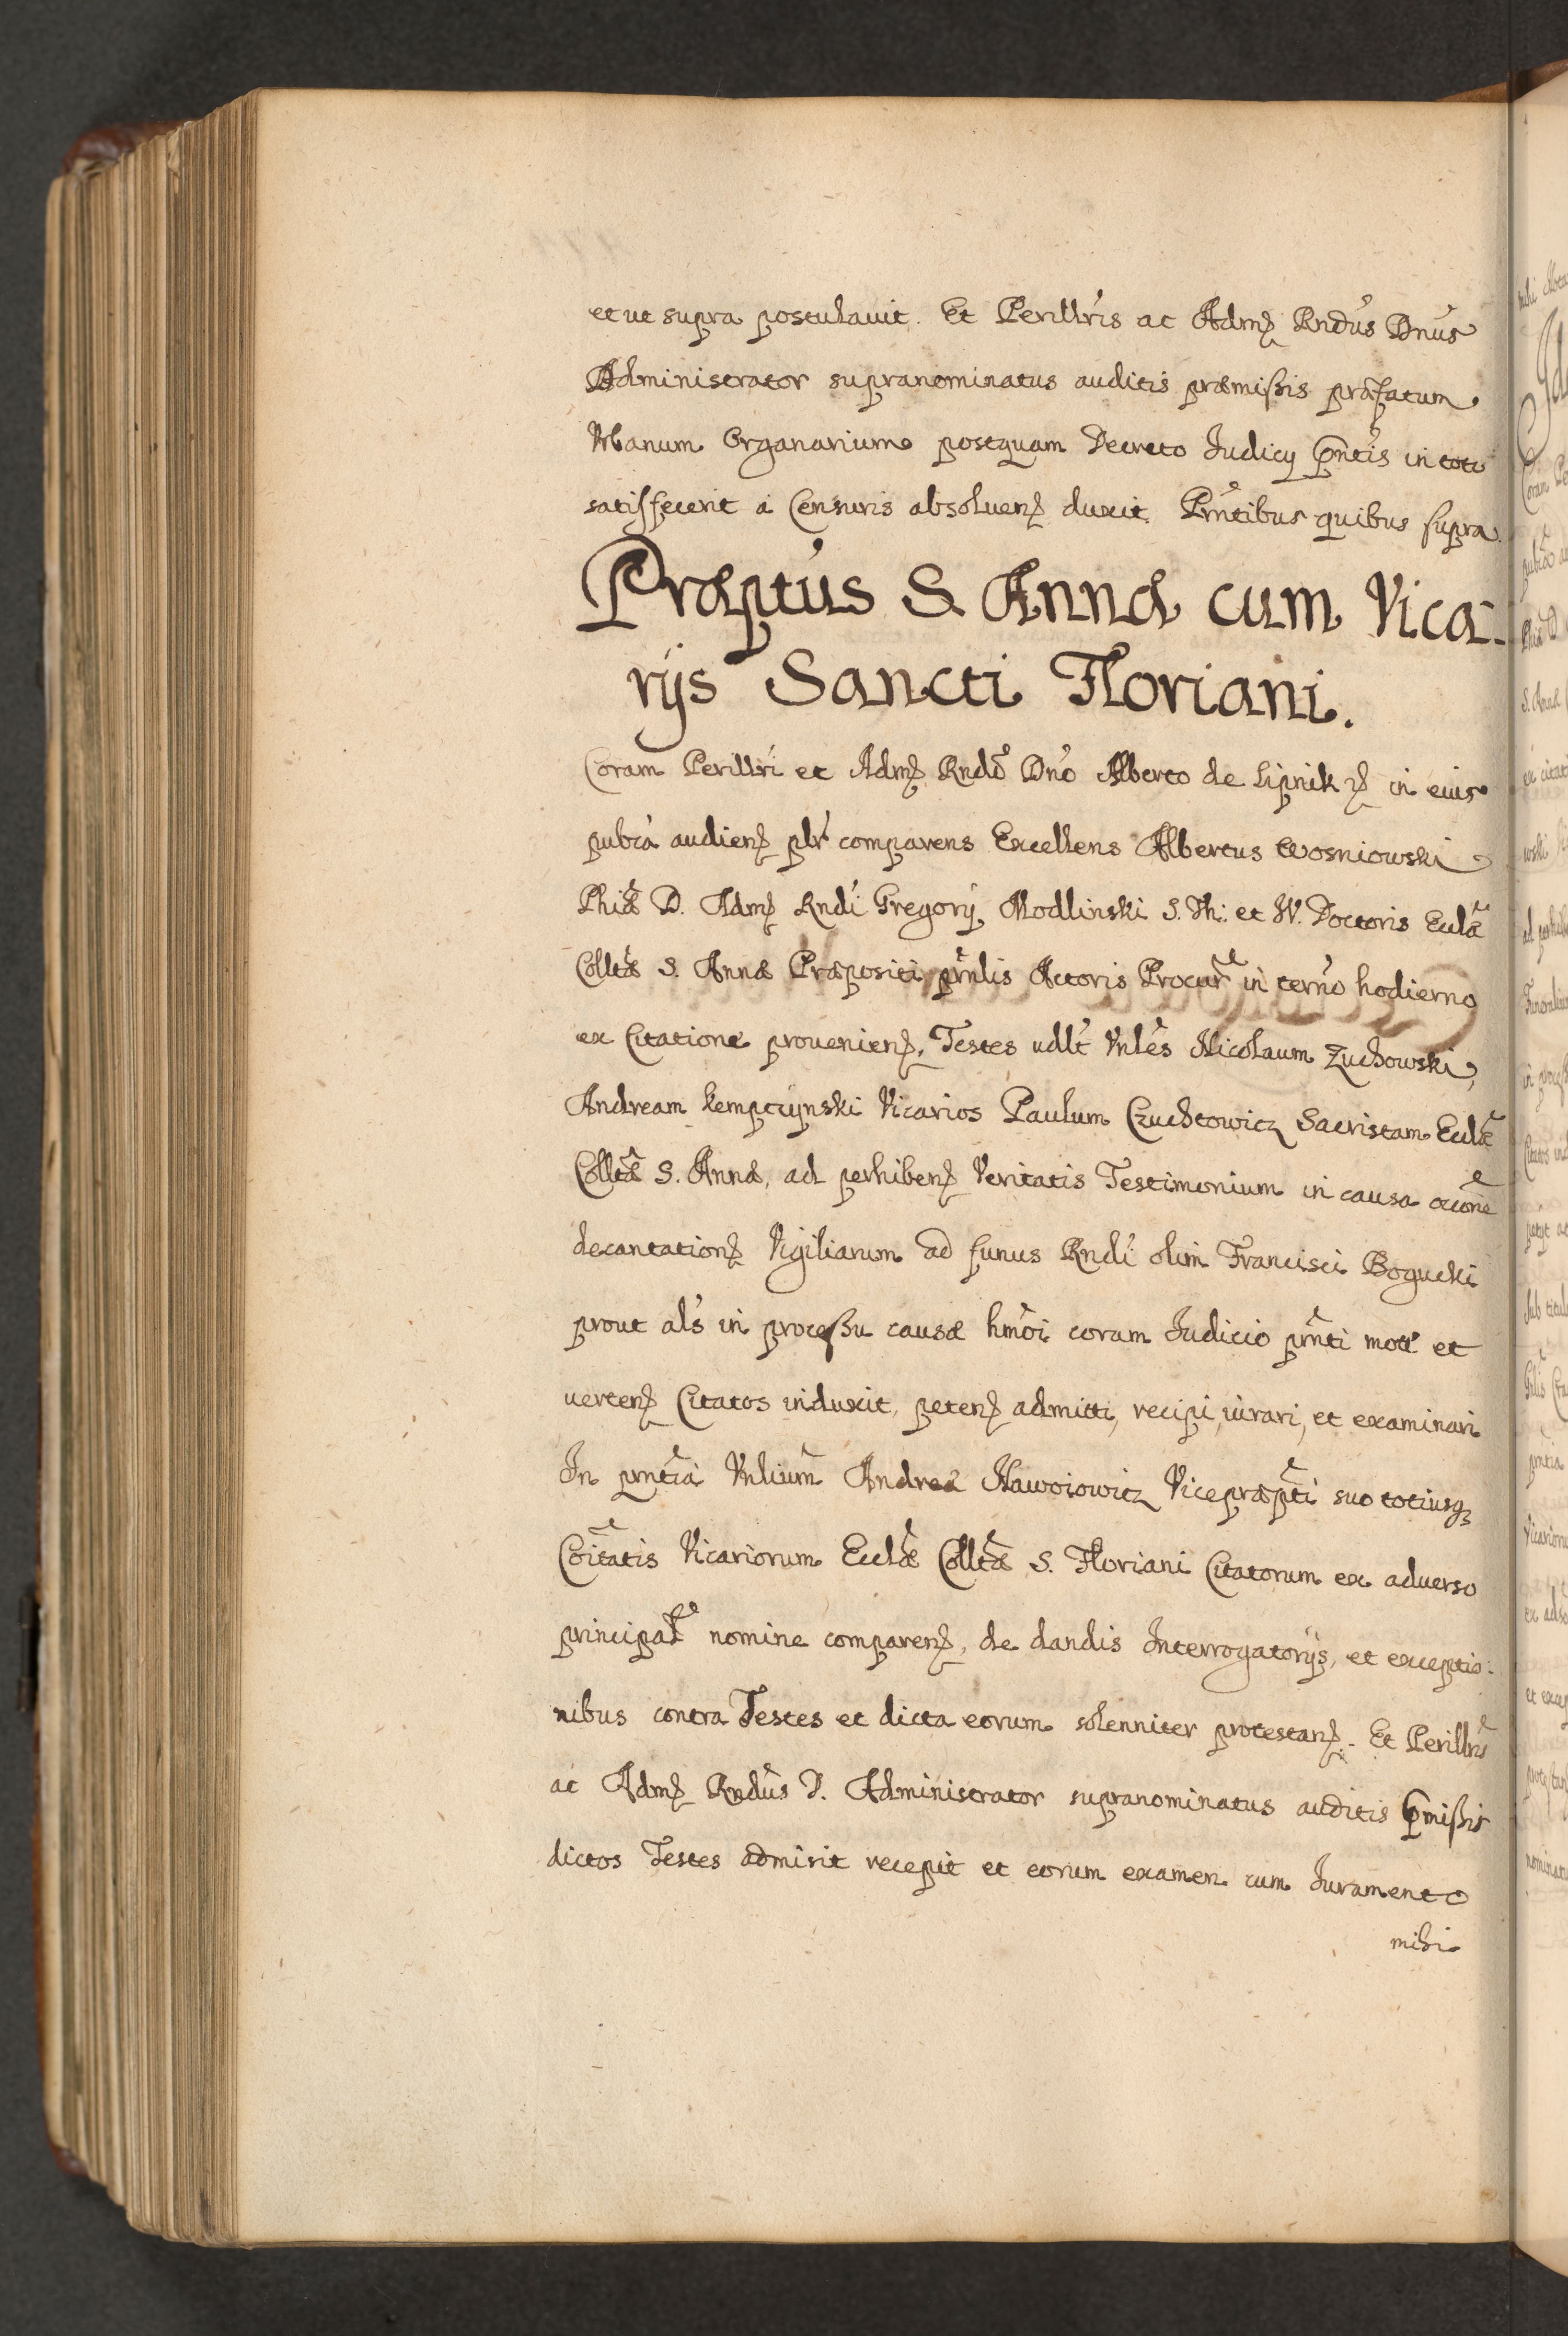 et ut supra postulavit. Et Perillris ac Admꝫ Rndus Dnus
Administrator supranominatus auditis præmißis præfatum
Vrbanum Organarium postquam Decreto Judicij pntis in toto
satisfecerit a Censuris absoluenꝫ duxit. Pntibus quibus supra
Præptus S. Annæ cum Vica-
rijs Sancti Floriani.
Coram Perillri et Admꝫ Rndo Dno Alberto de Lipnik ꝛꝫ in eius
pubca audienꝫ plr comparens Excellens Albertus Wosniowski
Phiæ D. Admꝫ Rndi Gregorij Modlinski S. Th: et IV. Doctoris Ecclæ
Colltæ S. Annæ Præpositi prnlis Actoris Procur in termo hodierno
ex Citatione prouenienꝫ, Testes udlt Vnles Nicolaum Zuchowski,
Andream Kempczynski Vicarios Paulum Czuchtowicz Sacristam Ecclæ
Colltæ S. Annæ, ad perhibenꝫ Veritatis Testimonium in causa
decantationꝫ Vigiliarum ad funus Rndi olim Francisci Bogucki
prout als in proceßu causæ hmoi coram Judicio prnti motæ et
uertenꝫ Citatos induxit, petenꝫ admitti, recipi, iurari, et examinari
In pntia Vnlium Andreæ Nawoiowicz Vicepræpti suo totiusqꝫ
Coitatis Vicariorum Ecclæ Colltæ S. Floriani Citatorum ex aduerso
principal nomine comparenꝫ, de dandis Interrogatorijs, et exceptio-
nibus contra Testes et dicta eorum solenniter protestanꝫ. Et Perillris
ac Admꝫ Rndus D. Administrator supranominatus auditis pmißis
dictos Testes admisit recepit et eorum examen cum Juramento
mihi